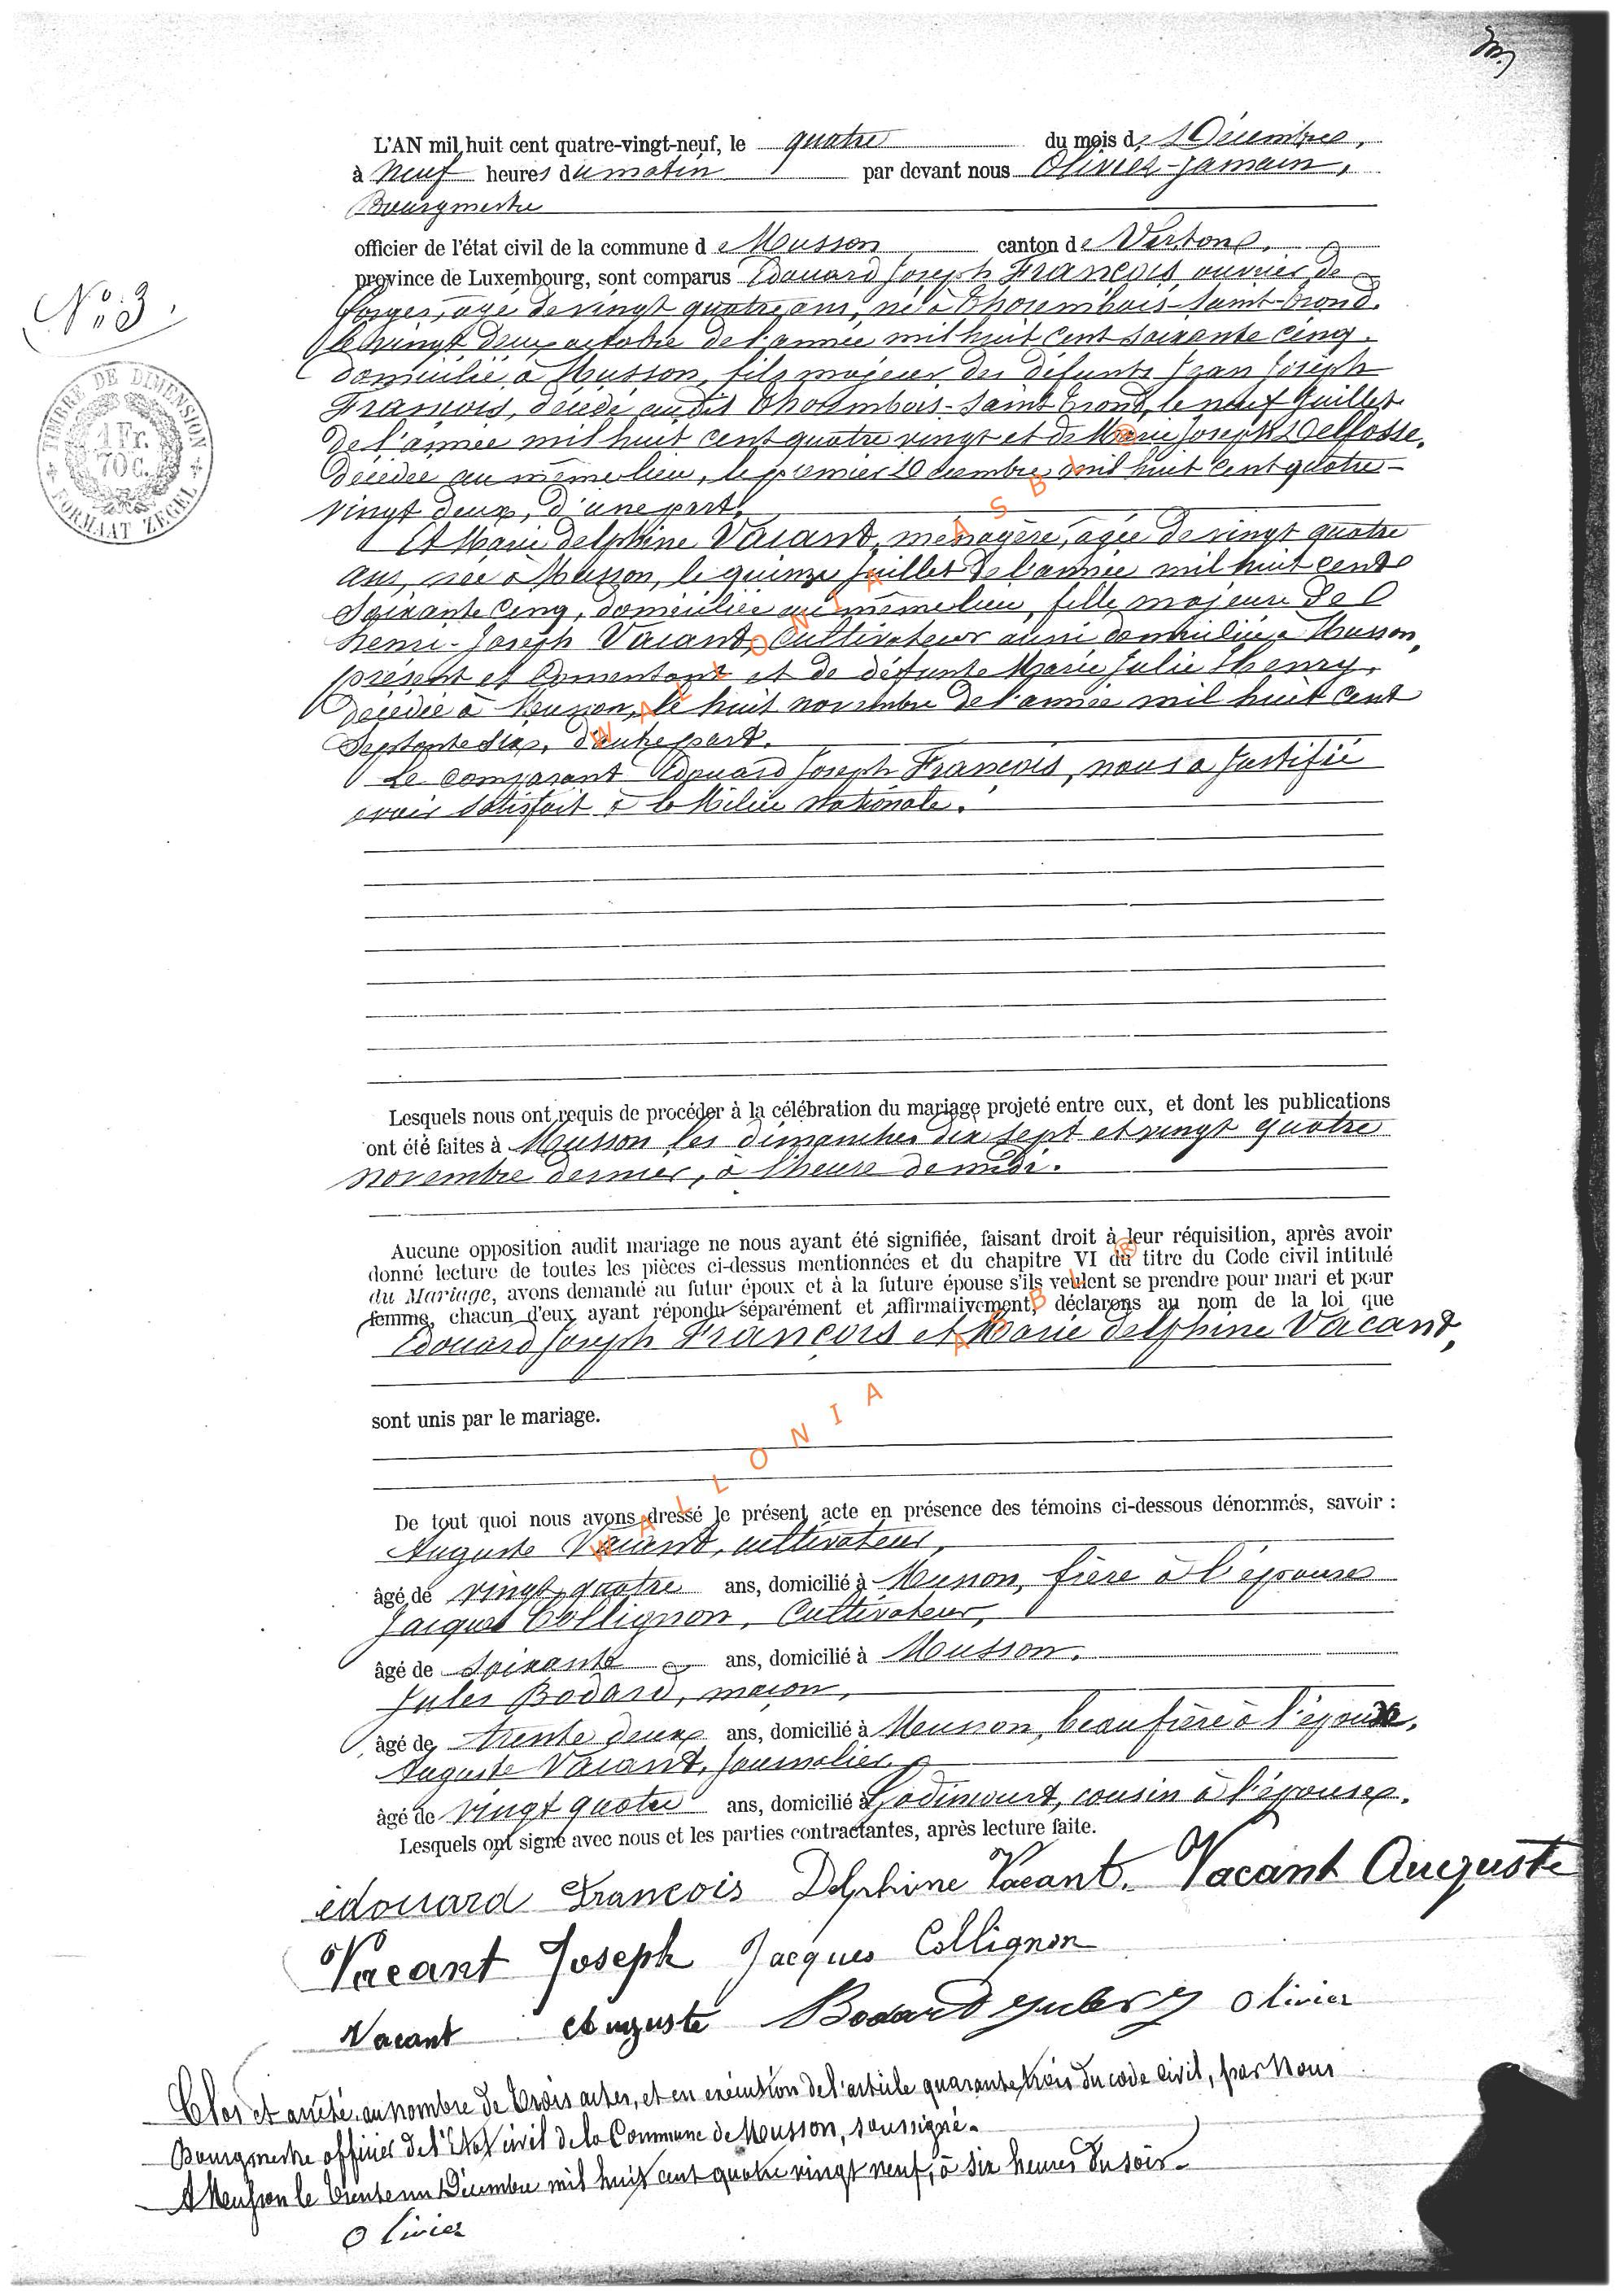 L'AN mil huit cent quatre-vingt-neuf, le quatre du mois de Décembre,
à neuf heures du matin par devant nous Olivier-Jamain,
Bourgmestre
officier de l'état civil de la commune de Musson canton de Virton,
province de Luxembourg, sont comparus Edouard Joseph François, ouvrier de
forges, âgé de vingt quatre ans, né à Thorembais-Saint-Trond,
le vingt deux octobre de l'année mil huit cent soixante cinq,
domicilié à Musson, fils majeur des défunts Jean Joseph
François, décédé audit Thorembais-Saint Trond, le neuf Juillet
de l'année mil huit cent quatre vingt et de Marie Joseph Delfosse,
décédée au même lieu, le premier Décembre mil huit cent quatre-
vingt deux, d'une part,
Et Marie Delphine Vacant, ménagère, âgée de vingt quatre
ans, née à Musson, le quinze Juillet de l'année mil huit cent
soixante cinq, domiciliée au même lieu, fille majeure de
Henri-Joseph Vacant, cultivateur aussi domicilié à Musson,
présent et consentant et de défunte Marie Julie Henry,
décédée à Musson, le huit novembre de l'année mil huit cent
septante six, d'autre part.
Le comparant Edouard Joseph François, nous a justifié
avoir satisfait à la Milice Nationale.
N° 3.
TIMBRE DE DIMENSION
1 Fr.
70 C.
FORMAAT ZEGEL
Lesquels nous ont requis de procéder à la célébration du mariage projeté entre eux, et dont les publications
ont été faites à Musson, les dimanches dix sept et vingt quatre
novembre dernier, à l'heure de midi.
Aucune opposition audit mariage ne nous ayant été signifiée, faisant droit à leur réquisition, après avoir
donné lecture de toutes les pièces ci-dessus mentionnées et du chapitre VI du titre du Code civil intitulé
du Mariage, avons demandé au futur époux et à la future épouse s'ils veulent se prendre pour mari et pour
femme, chacun d'eux ayant répondu séparément et affirmativement, déclarons au nom de la loi que
Edouard Joseph François et Marie Delphine Vacant,
sont unis par le mariage.
WALLONIA ASBL ®
WALLONIA ASBL ®
De tout quoi nous avons dressé le présent acte en présence des témoins ci-dessous dénommés, savoir :
Auguste Vacant, cultivateur,
âgé de vingt quatre ans, domicilié à Musson, frère à l'épouse
Jacques Collignon, Cultivateur,
âgé de soixante ans, domicilié à Musson.
Jules Bodard, maçon,
âgé de trente deux ans, domicilié à Musson, beau frère à l'épouse.
Auguste Vacant, Journalier,
âgé de vingt quatre ans, domicilié à Godincourt, cousin à l'épouse.
Lesquels ont signé avec nous et les parties contractantes, après lecture faite.
édouard François Delphine Vacant. Vacant Auguste
Vacant Joseph Jacques Collignon
Vacant Auguste Bodard Jules Olivier
Clos et arrêté, au nombre de trois actes, et en exécution de l'article quarante trois du code civil, par Nous
Bourgmestre officier de l'Etat civil de la Commune de Musson, soussigné.
A Musson le trente un Décembre mil huit cent quatre vingt neuf, à six heures du soir.
Olivier